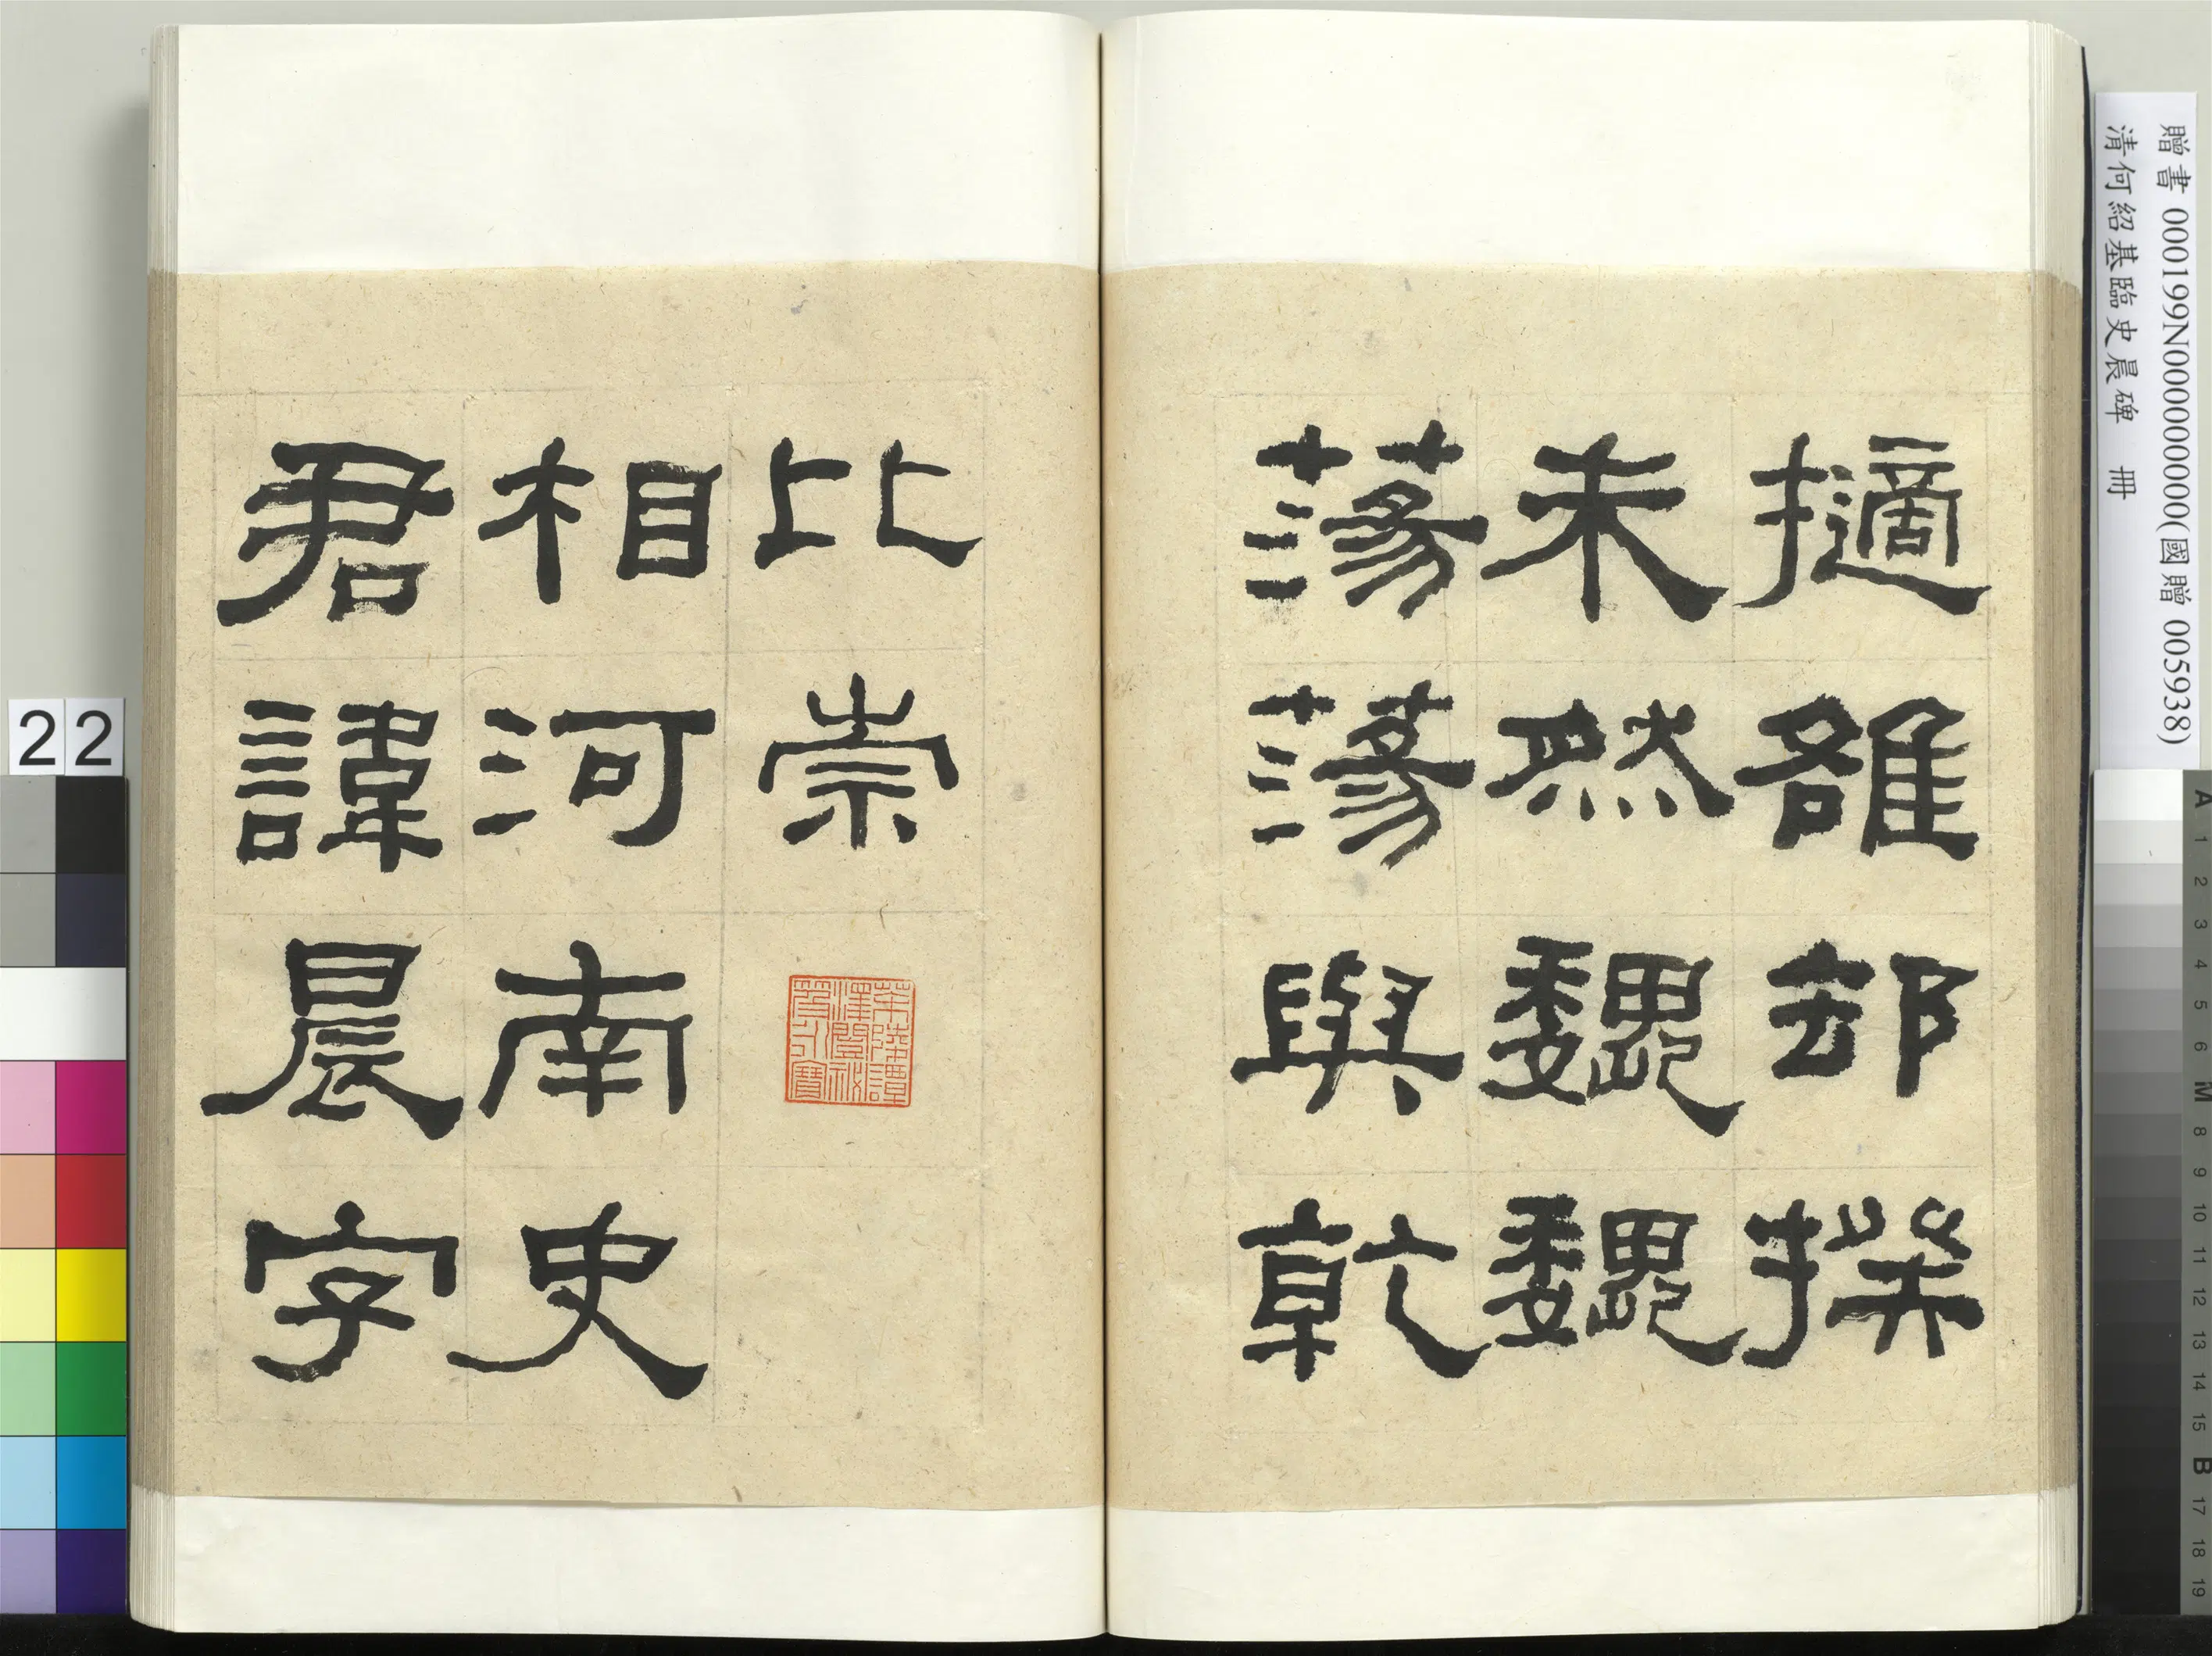 擿雒却揆
未然魏魏
蕩蕩與乾
比崇
相河南史
君諱晨字
贈書 000199N000000000(國贈 005938)
清何紹基臨史晨碑 冊
22
A 1 2 3 4 5 6 M 8 9 10 11 12 13 14 15 B 17 18 19